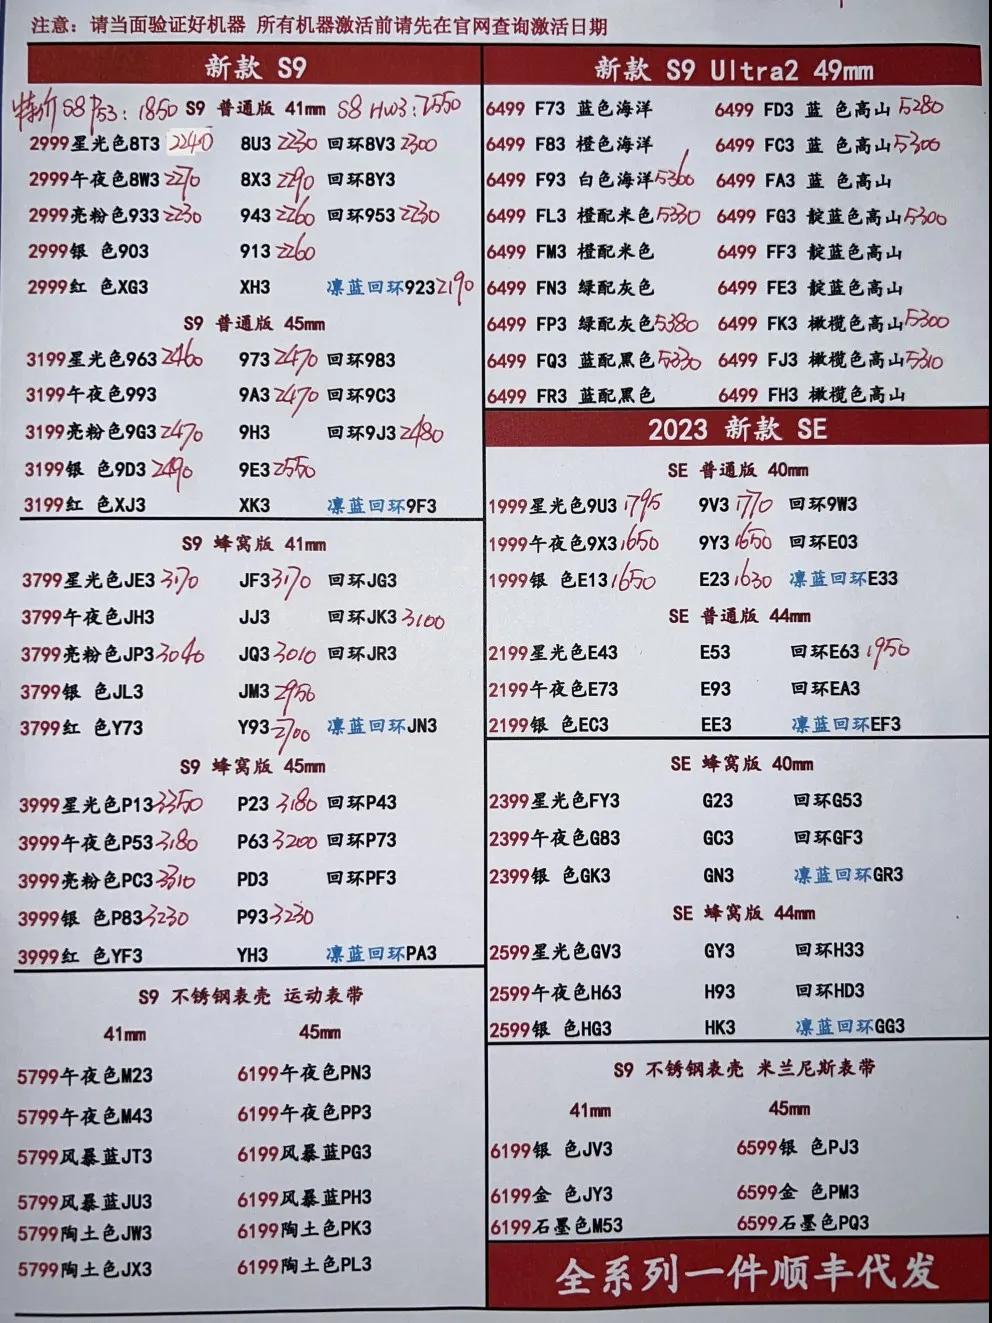 注意：请当面验证好机器 所有机器激活前请先在官网查询激活日期
新款 S9
特价 S8 P53：1850 S9 普通版 41mm S8 HW3：2550
2999星光色8T3 2240 8U3 2230 回环8V3 2300
2999午夜色8W3 2270 8X3 2290 回环8Y3
2999亮粉色933 2230 943 2260 回环953 2230
2999银 色903 913 2260
2999红 色XG3 XH3 凛蓝回环923 2190
S9 普通版 45mm
3199星光色963 2460 973 2470 回环983
3199午夜色993 9A3 2470 回环9C3
3199亮粉色9G3 2470 9H3 回环9J3 2480
3199银 色9D3 2490 9E3 2550
3199红 色XJ3 XK3 凛蓝回环9F3
S9 蜂窝版 41mm
3799星光色JE3 3170 JF3 3170 回环JG3
3799午夜色JH3 JJ3 回环JK3 3100
3799亮粉色JP3 3040 JQ3 3010 回环JR3
3799银 色JL3 JM3 2950
3799红 色Y73 Y93 2700 凛蓝回环JN3
S9 蜂窝版 45mm
3999星光色P13 3350 P23 3180 回环P43
3999午夜色P53 3180 P63 3200 回环P73
3999亮粉色PC3 3310 PD3 回环PF3
3999银 色P83 3230 P93 3230
3999红 色YF3 YH3 凛蓝回环PA3
S9 不锈钢表壳 运动表带
41mm 45mm
5799午夜色M23 6199午夜色PN3
5799午夜色M43 6199午夜色PP3
5799风暴蓝JT3 6199风暴蓝PG3
5799风暴蓝JU3 6199风暴蓝PH3
5799陶土色JW3 6199陶土色PK3
5799陶土色JX3 6199陶土色PL3
新款 S9 Ultra2 49mm
6499 F73 蓝色海洋 6499 FD3 蓝 色高山 5280
6499 F83 橙色海洋 6499 FC3 蓝 色高山 5300
6499 F93 白色海洋 5360 6499 FA3 蓝 色高山
6499 FL3 橙配米色 5330 6499 FG3 靛蓝色高山 5300
6499 FM3 橙配米色 6499 FF3 靛蓝色高山
6499 FN3 绿配灰色 6499 FE3 靛蓝色高山
6499 FP3 绿配灰色 5380 6499 FK3 橄榄色高山 5300
6499 FQ3 蓝配黑色 5330 6499 FJ3 橄榄色高山 5310
6499 FR3 蓝配黑色 6499 FH3 橄榄色高山
2023 新款 SE
SE 普通版 40mm
1999星光色9U3 1795 9V3 1770 回环9W3
1999午夜色9X3 1650 9Y3 1650 回环E03
1999银 色E13 1650 E23 1630 凛蓝回环E33
SE 普通版 44mm
2199星光色E43 E53 回环E63 1950
2199午夜色E73 E93 回环EA3
2199银 色EC3 EE3 凛蓝回环EF3
SE 蜂窝版 40mm
2399星光色FY3 G23 回环G53
2399午夜色G83 GC3 回环GF3
2399银 色GK3 GN3 凛蓝回环GR3
SE 蜂窝版 44mm
2599星光色GV3 GY3 回环H33
2599午夜色H63 H93 回环HD3
2599银 色HG3 HK3 凛蓝回环GG3
S9 不锈钢表壳 米兰尼斯表带
41mm 45mm
6199银 色JV3 6599银 色PJ3
6199金 色JY3 6599金 色PM3
6199石墨色M53 6599石墨色PQ3
全系列一件顺丰代发